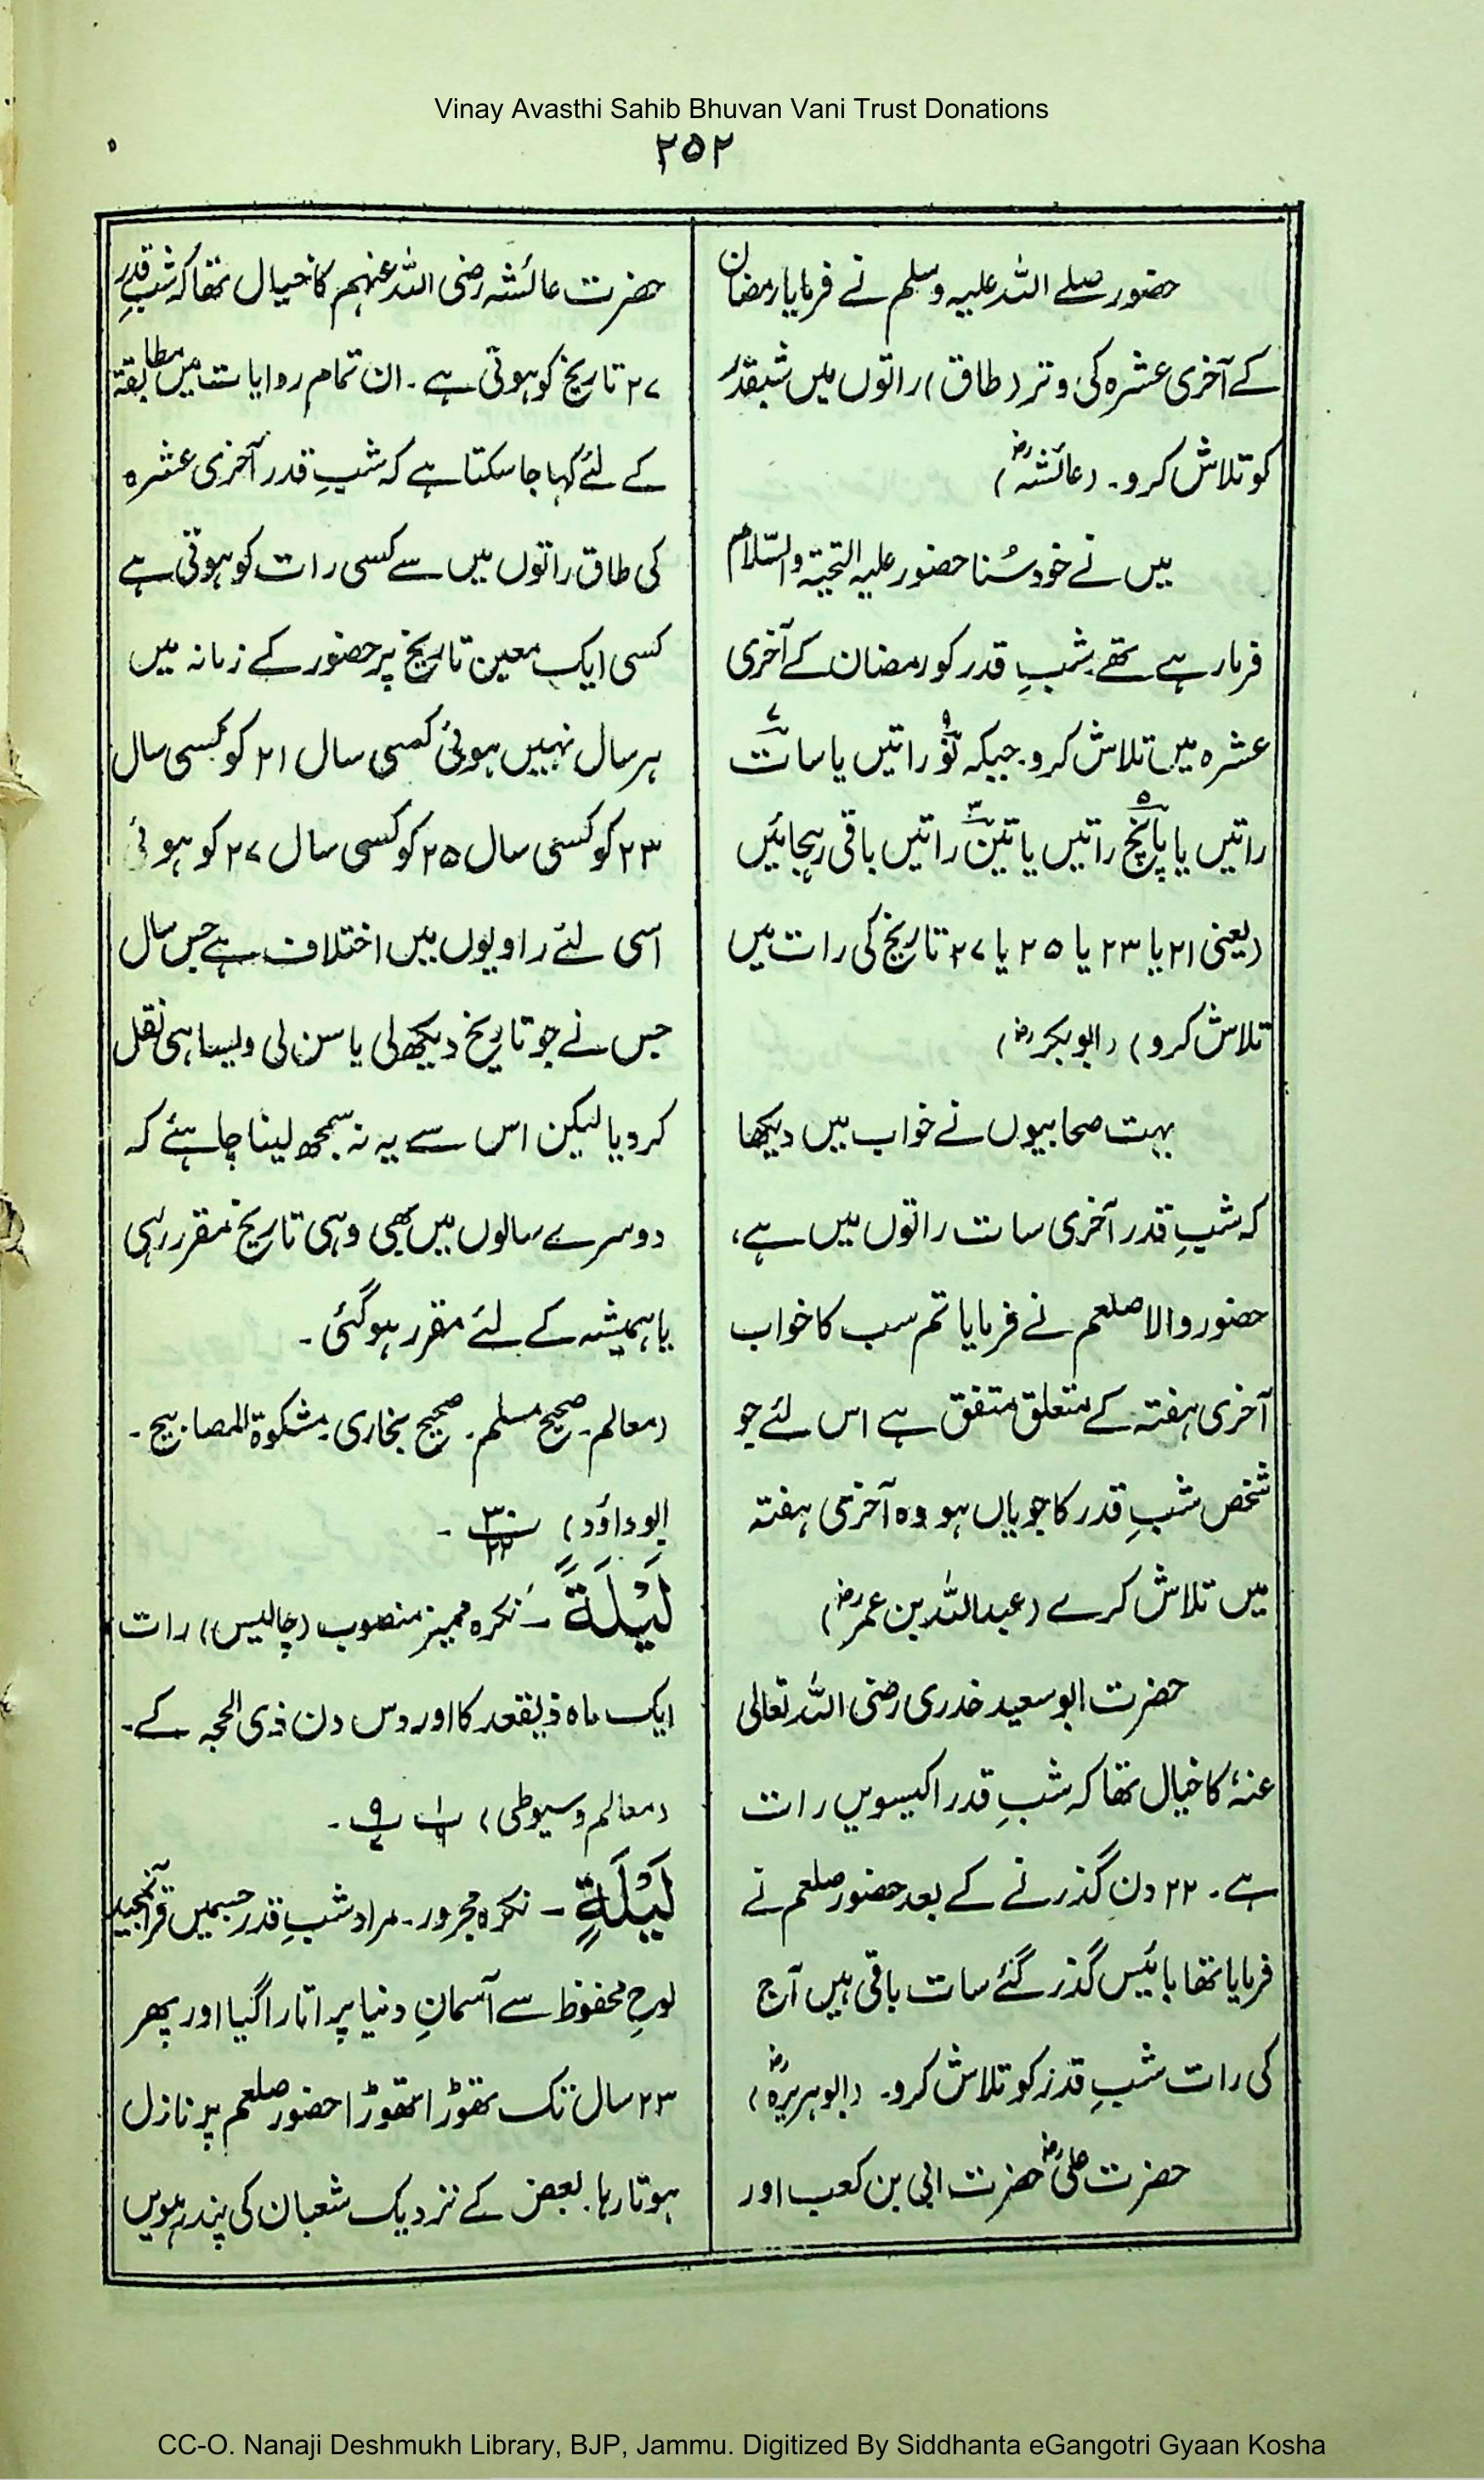 Vinay Avasthi Sahib Bhuvan Vani Trust Donations
۲۵۲
حضور صلے اللہ علیہ وسلم نے فرمایا رمضان
کے آخری عشرہ کی وتر (طاق) راتوں میں شبقدر
کو تلاش کرو۔ (عائشہؓ)
میں نے خود سُنا حضور علیہ التحیۃ والسّلام
فرما رہے تھے شبِ قدر کو رمضان کے آخری
عشرہ میں تلاش کرو۔ جبکہ نو۹ راتیں یا سات۷
راتیں یا پانچ۵ راتیں یا تین۳ راتیں باقی رہجائیں
(یعنی ۲۱ یا ۲۳ یا ۲۵ یا ۲۷ تاریخ کی رات میں
تلاش کرو) (ابوبکرؓ)
بہت صحابیوں نے خواب میں دیکھا
کہ شبِ قدر آخری سات راتوں میں ہے،
حضور والا صلعم نے فرمایا تم سب کا خواب
آخری ہفتہ کے متعلق متفق ہے اس لئے جو
شخص شبِ قدر کا جویاں ہو وہ آخری ہفتہ
میں تلاش کرے (عبداللہ بن عمرؓ)
حضرت ابو سعید خدری رضی اللہ تعالی
عنہٗ کا خیال تھا کہ شبِ قدر اکیسویں رات
ہے۔ ۲۲ دن گذرنے کے بعد حضور صلعم نے
فرمایا تھا بائیس گذر گئے سات باقی ہیں آج
کی رات شبِ قدر کو تلاش کرو۔ (ابوہریرہؓ)
حضرت علیؓ حضرت ابی بن کعب اور
حضرت عائشہ رضی اللہ عنہم کا خیال تھا کہ شبِ قدر
۲۷ تاریخ کو ہوتی ہے۔ ان تمام روایات میں مطابقۃ
کے لئے کہا جا سکتا ہے کہ شبِ قدر آخری عشرہ
کی طاق راتوں میں سے کسی رات کو ہوتی ہے
کسی ایک معین تاریخ پر حضور کے زمانہ میں
ہر سال نہیں ہوئی کسی سال ۲۱ کو کسی سال
۲۳ کو کسی سال ۲۵ کو کسی سال ۲۷ کو ہوئی
اسی لئے راویوں میں اختلاف ہے جس سال
جس نے جو تاریخ دیکھ لی یا سن لی ویسا ہی نقل
کر دیا لیکن اس سے یہ نہ سمجھ لینا چاہئے کہ
دوسرے سالوں میں بھی وہی تاریخ مقرر رہی
یا ہمیشہ کے لئے مقرر ہو گئی۔
(معالم۔ صحیح مسلم۔ صحیح بخاری۔ مشکوۃ المصابیح۔
ابو داؤد) پ۳۰ ۲۲۔
لَیْلَۃً ۔ نکرہ ممیز منصوب (چالیس) رات
ایک ماہ ذیقعد کا اور دس دن ذی الحجہ کے۔
(معالم وسیوطی) پ۱ ۶ پ۹ ۷۔
لَیْلَۃٍ ۔ نکرہ مجرور۔ مراد شبِ قدر جسمیں قرآنمجید
لوحِ محفوظ سے آسمانِ دنیا پر اتارا گیا اور پھر
۲۳ سال تک تھوڑا تھوڑا حضور صلعم پر نازل
ہوتا رہا۔ بعض کے نزدیک شعبان کی پندرہویں
CC-O. Nanaji Deshmukh Library, BJP, Jammu. Digitized By Siddhanta eGangotri Gyaan Kosha